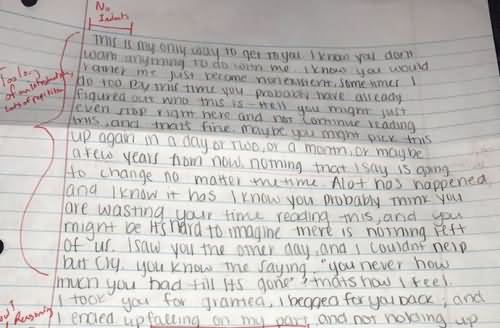 No
Indents
This is my only way to get to you I know you don't
want anything to do with me. I know you would
rather me just become nonexistent, sometimes I
do too By this time you probably have already
figured out who this is - Hell you might just
even stop right here and not continue reading
this, and that's fine. maybe you might pick this
up again in a day or two, or a month, or maybe
a few years from now. nothing that I say is going
to change no matter the time. Alot has happened,
and I know it has I know you probably think you
are wasting your time reading this, and you
might be Its hard to imagine there is nothing left
of us. I saw you the other day, and I couldnt help
but cry. you know the saying, "you never how
much you had till its gone", thats how I feel
I took you for granted, I begged for you back, and
I ended up falling on my part, and not holding up
Too long
of an introduction,
Lots of repetition
Reasoning